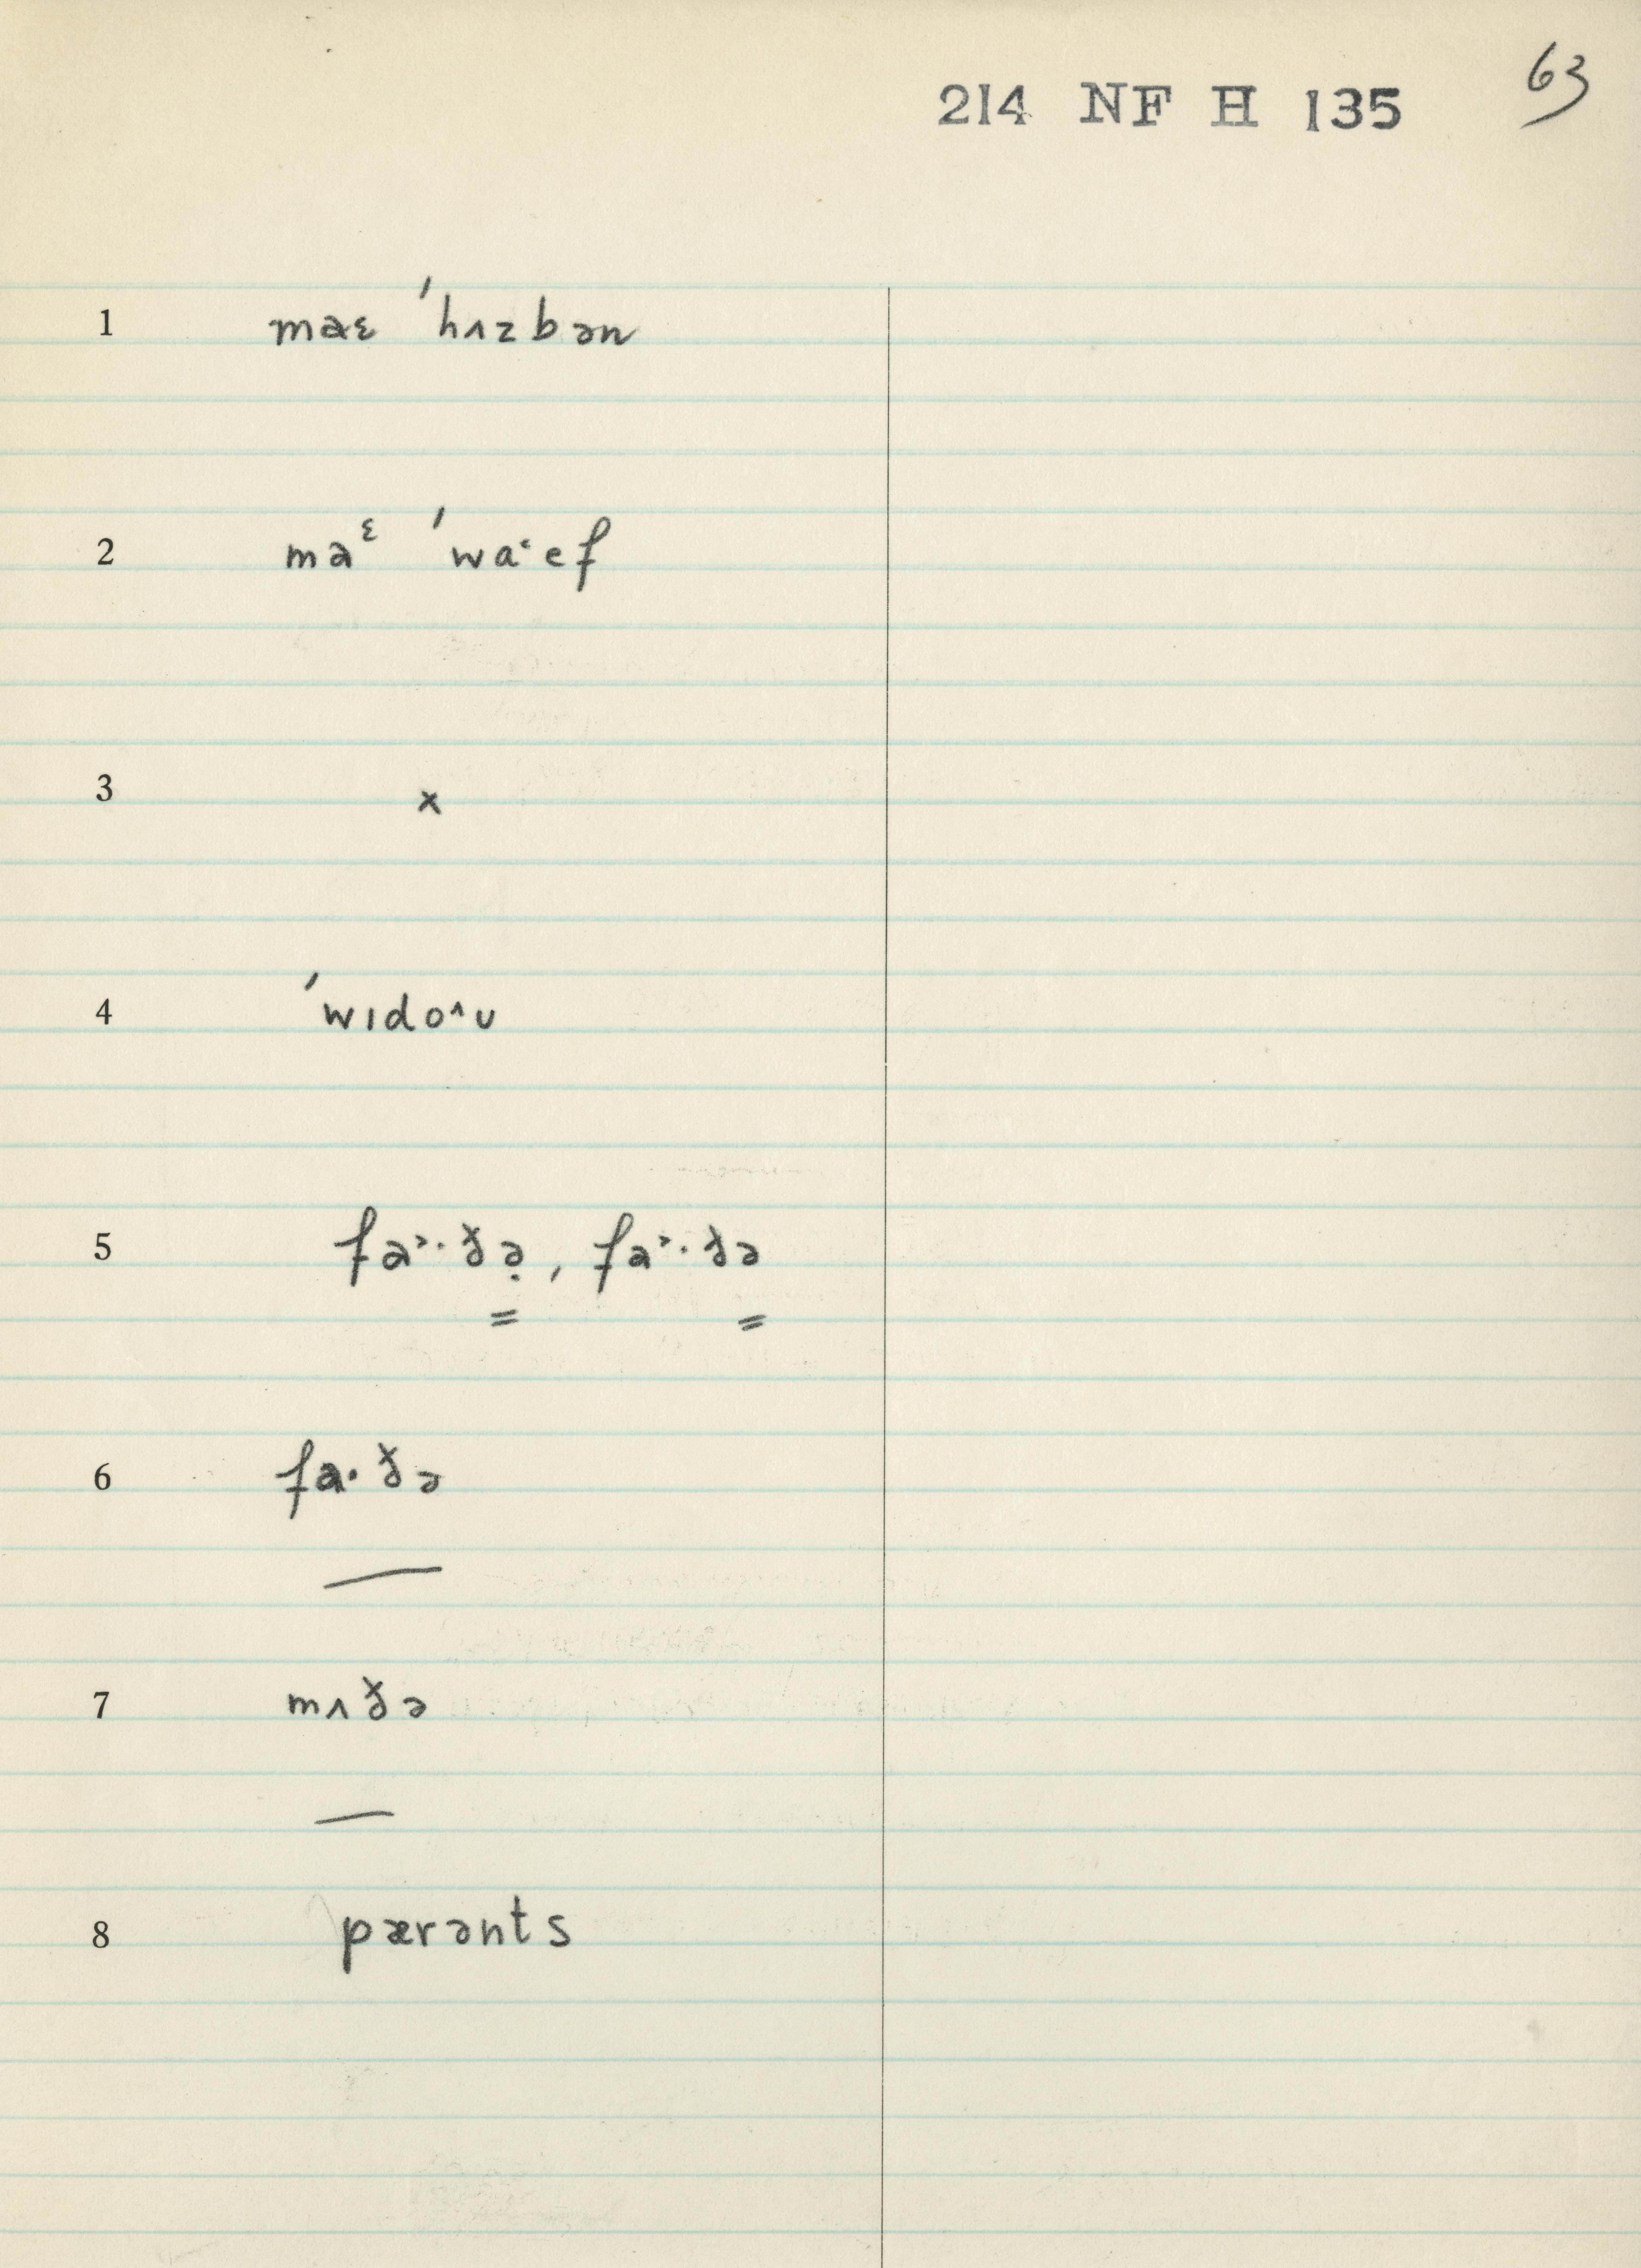 214 NF H 135 63
1 maɛ ˈhʌzbən
2 maᵋ ˈwa˓ef
3 x
4 ˈwɪdo˄ʊ
5 fa˃·ðə̣, fa˃·ðə
= =
6 fa·ðə
—
7 mʌðə
—
8 pærənts